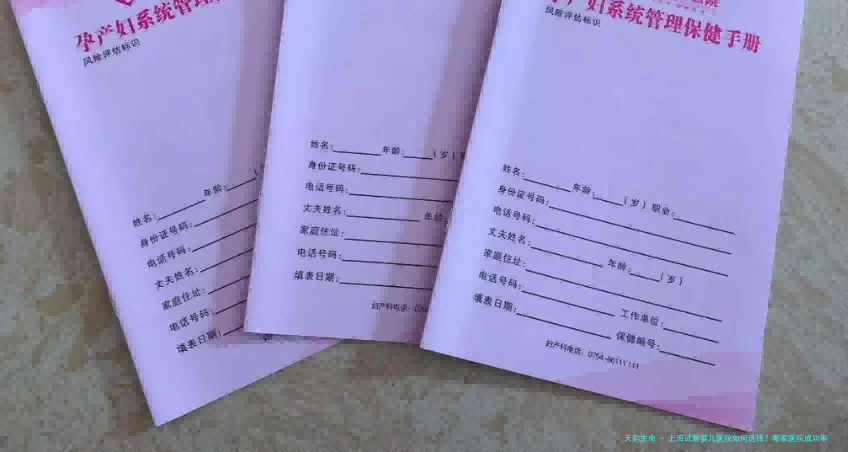 孕产妇系统管理
风险评估标识
姓名: 年龄:
身份证号码:
电话号码:
丈夫姓名:
家庭住址:
电话号码:
填表日期:
姓名: 年龄: (岁)
身份证号码:
电话号码:
丈夫姓名: 年龄:
家庭住址:
电话号码:
填表日期:
妇产科电话:
院
孕产妇系统管理保健手册
风险评估标识
姓名: 年龄: (岁) 职业:
身份证号码:
电话号码:
丈夫姓名: 年龄: (岁)
家庭住址:
电话号码: 工作单位:
填表日期: 保健编号:
妇产科电话: 0754-86111111
天韵生命 - 上海试管婴儿医院如何选择？哪家医院成功率